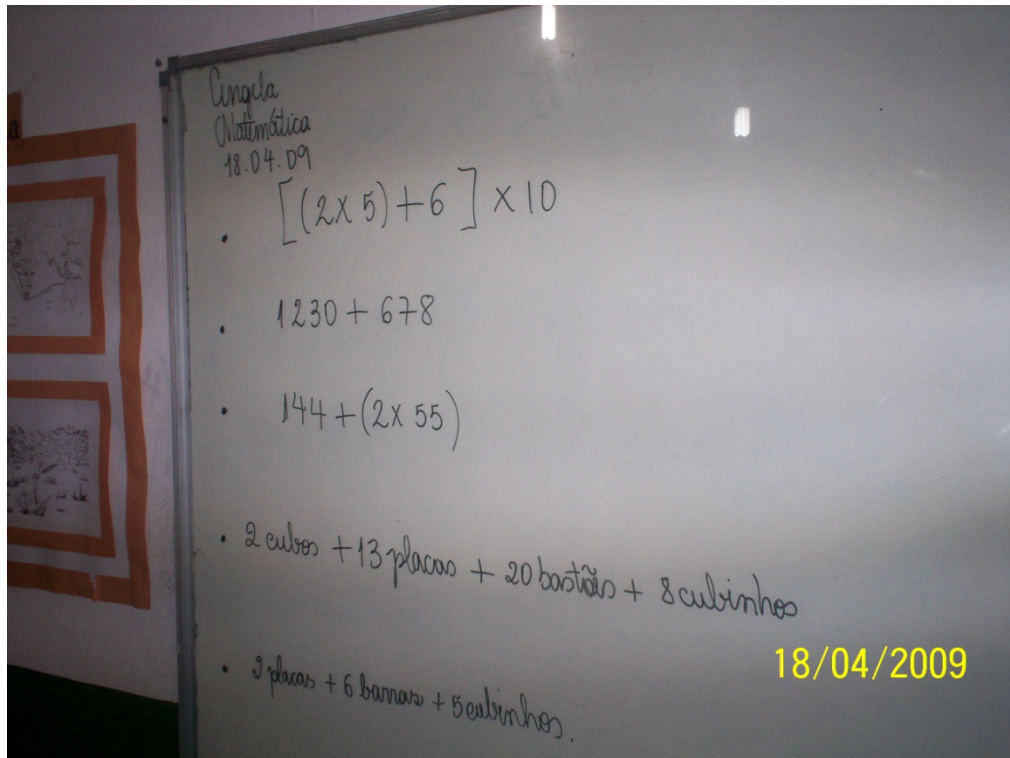 Angela
Matemática
18.04.09
• [(2x5)+6] x10
• 1230+678
• 144+(2x 55)
• 2 cubos +13 placas + 20 bastões + 8 cubinhos
• placas + 6 barras + 5 cubinhos.
18/04/2009